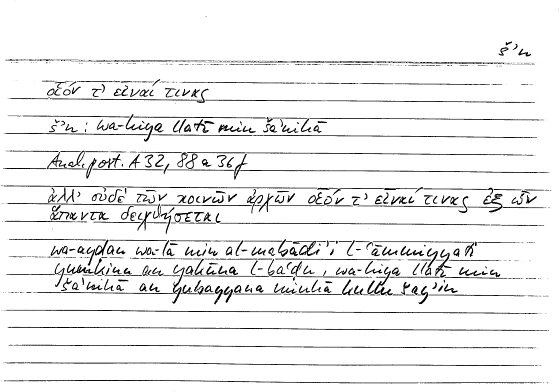 š’n
οἷόν τ’ εἶναί τινας
š’n : wa-hiya llatī min ša’nihā
Anal. post. A 32, 88 a 36f
ἀλλ’ οὐδὲ τῶν κοινῶν ἀρχῶν οἷόν τ’ εἶναί τινας ἐξ ὧν
ἅπαντα δειχθήσεται
wa-ayḍan wa-lā min al-mabādi’i l-‘āmmiyyati
yumkinu an yakūna l-ba‘ḍu, wa-hiya llatī min
ša’nihā an yubayyana minhā kullu šay’in